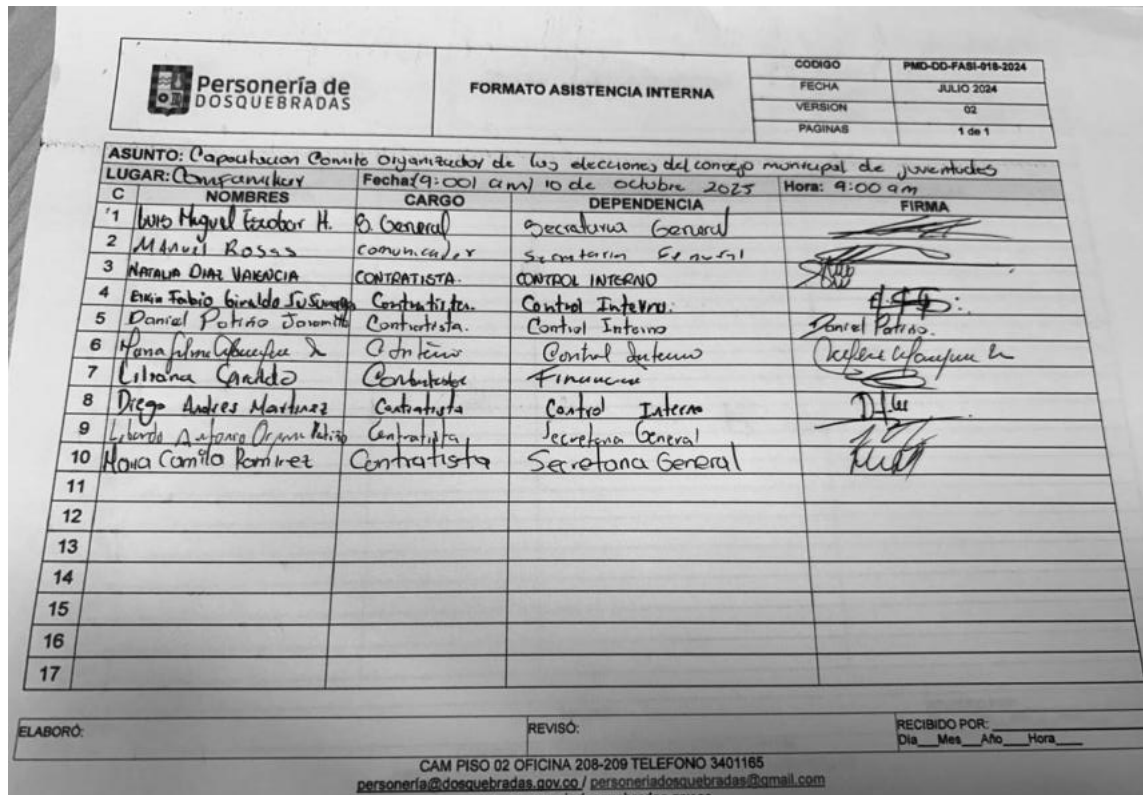 Personería de
DOSQUEBRADAS
FORMATO ASISTENCIA INTERNA
CODIGO PMD-DD-FASI-018-2024
FECHA JULIO 2024
VERSION 02
PAGINAS 1 de 1
ASUNTO: Capacitacion Comite Organizador de las elecciones del consejo municipal de juventudes
LUGAR: Comfamiliar Fecha: (9:001 am) 10 de octubre 2025 Hora: 9:00 am
C NOMBRES CARGO DEPENDENCIA FIRMA
1 Luis Miguel Escobar H. S. General Secretaria General
2 Manuel Rosas comunicador Secretaria General
3 NATALIA DIAZ VALENCIA CONTRATISTA. CONTROL INTERNO
4 Erkin Fabio Giraldo Contratista. Control Interno.
5 Daniel Patiño Jaramillo Contratista. Control Interno Daniel Patiño.
6 Control Interno
7 Liliana Giraldo Contratista Financiera
8 Diego Andres Martinez Contratista Control Interno
9 Antonio Patiño Contratista Secretaria General
10 Maria Camila Ramirez Contratista Secretaria General
11
12
13
14
15
16
17
ELABORÓ: REVISÓ: RECIBIDO POR:
Dia Mes Año Hora
CAM PISO 02 OFICINA 208-209 TELEFONO 3401165
personería@dosquebradas.gov.co / personeriadosquebradas@gmail.com